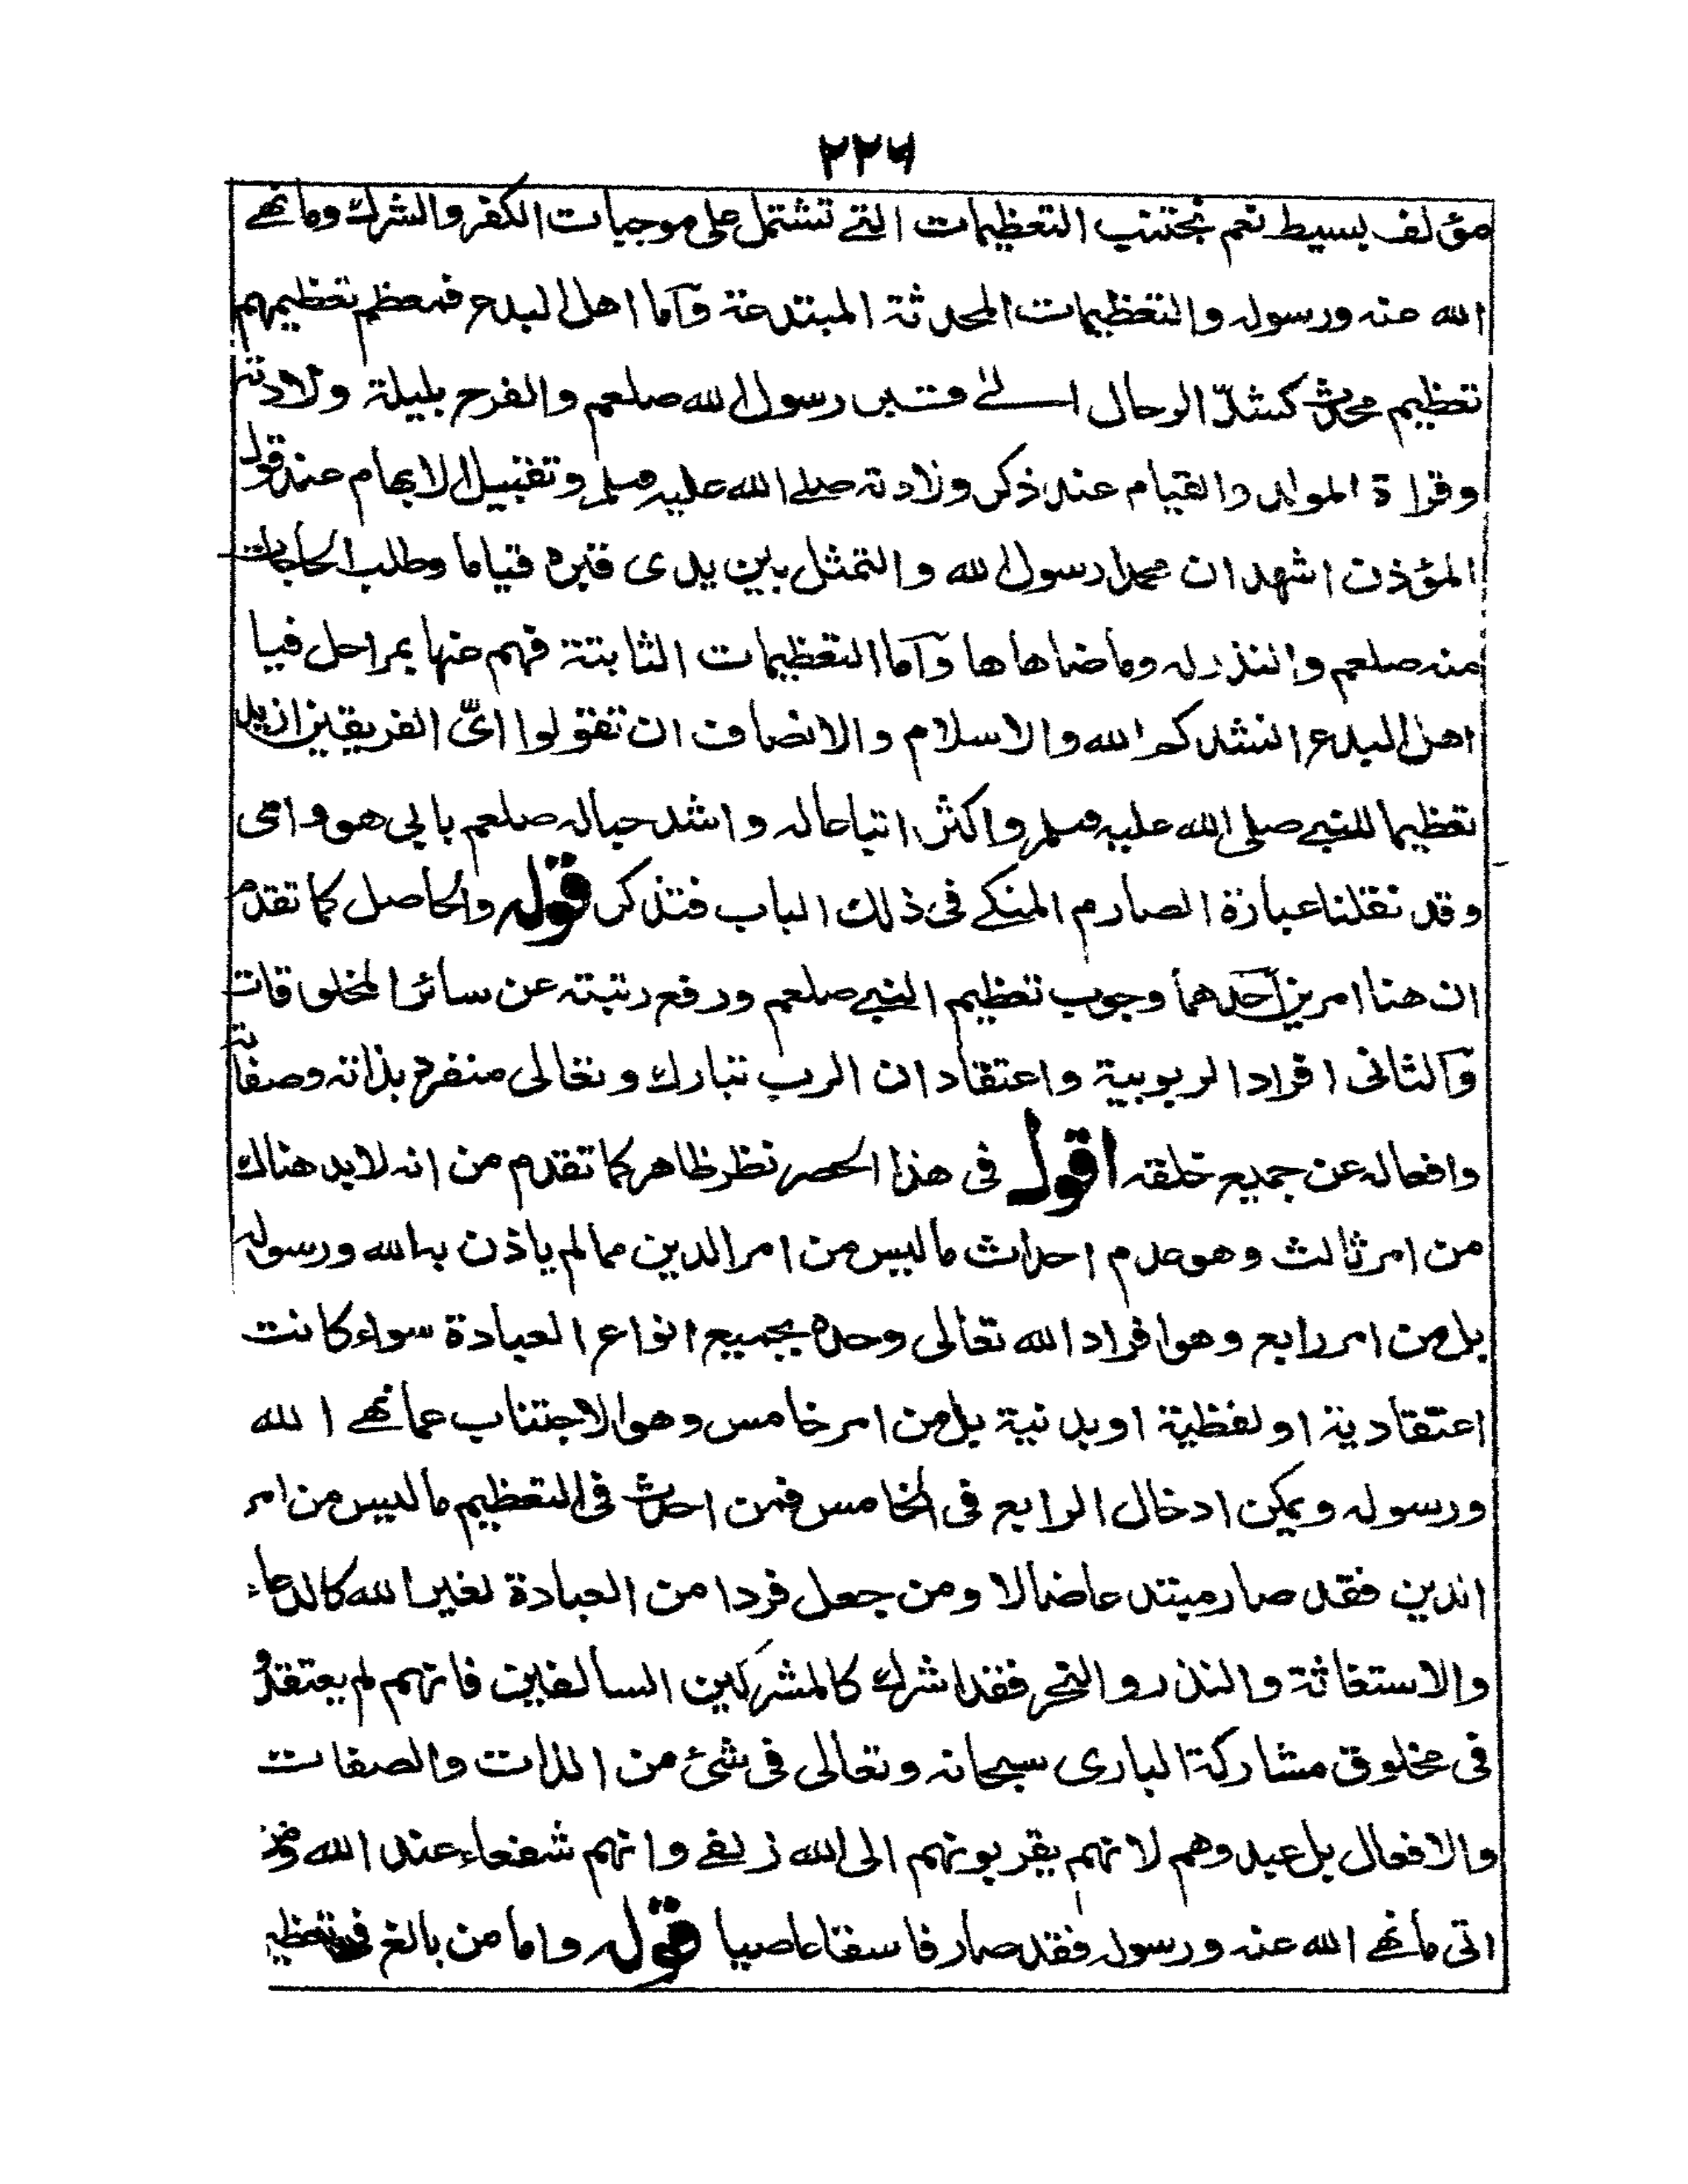 ٢٢٦
مؤلف بسيط نعم نجتنب التعظيمات التے تشتمل على موجبات الكفر والشرك وما نهے
الله عنه ورسوله والتعظيمات المحدثة المبتدعة وآما اهل البدع فمعظم تعظيمهم
تعظيم محدث كشدّ الرحال الے قبر رسول الله صلعم والفرح بليلة ولادته
وقراة المولد والقيام عند ذكر ولادته صلے الله عليه وسلم وتقبيل الابهام عند قول
المؤذن اشهد ان محمدا رسول الله والتمثل بين يدى قبره قياما وطلب الحاجات
منه صلعم والنذر له وما ضاهاها وآما التعظيمات الثابتة فهم عنها بمراحل فيا
اهل البدع انشدكم الله والاسلام والانصاف ان تقولوا اىّ الفريقين ازيد
تعظيما للنبے صلى الله عليه وسلم واكثر اتباعا له واشد حبا له صلعم بابي هو وامى
وقد نقلنا عبارة الصارم المنكے فى ذلك الباب فتذكر قوله والحاصل كما تقدم
ان هنا امرين آحدهما وجوب تعظيم النبے صلعم ورفع رتبته عن سائر المخلوقات
وآلثانى افراد الربوبية واعتقاد ان الرب تبارك وتعالى منفرد بذاته وصفاته
وافعاله عن جميع خلقه اقول فى هذا الحصر نظر ظاهر كما تقدم من انه لابد هناك
من امر ثالث وهو عدم احداث ما ليس من امر الدين مما لم ياذن به الله ورسوله
بل من امر رابع وهو افراد الله تعالى وحده بجميع انواع العبادة سواء كانت
اعتقادية او لفظية او بدنية بل من امر خامس وهو الاجتناب عما نهے الله
ورسوله ويمكن ادخال الرابع فى الخامس فمن احدث فى التعظيم ما ليس من امر
الدين فقد صار مبتدعا ضالا ومن جعل فردا من العبادة لغير الله كالدعاء
والاستغاثة والنذر والنحر فقد اشرك كالمشركين السالفين فانهم لم يعتقدوا
فى مخلوق مشاركة البارى سبحانه وتعالى فى شئ من الذات والصفات
والافعال بل عبدوهم لانهم يقربونهم الى الله زلفے وانهم شفعاء عند الله ومن
اتى ما نهے الله عنه ورسوله فقد صار فاسقا عاصيا قوله واما من بالغ فى تعظيم